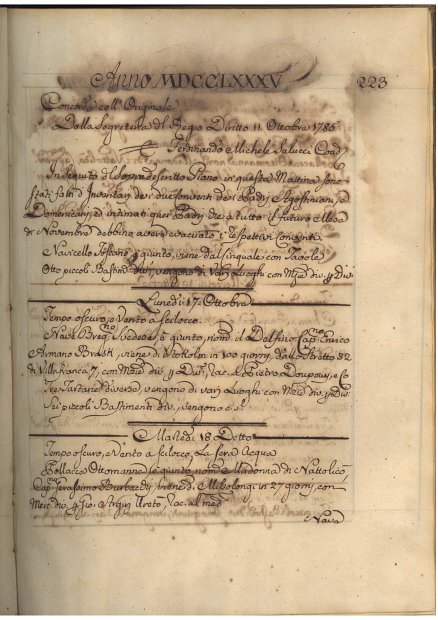 Anno MDCCLXXXV 223
Concorda coll' Originale
Dalla Segreteria del Regio Diritto 11. Ottobre 1785
Ferdinando Michele
In Seguito del sopradescritto Piano in questa Mattina sono
stati fatti d' Inventari dei due Conventi dei Padri Agostiniani, e
Domenicani, ed intimati quei Padri che p tutto il futuro Mese
di Novembre debbino avere evacuato i respettivi Conventi
Navicello Toscano è giunto, viene dal
Otto piccoli Bastim. div. vengono di varj Luoghi con Merc. div. p Div.
Lunedì 17. Ottobre
Tempo oscuro, e Vento a scilocco.
Nave Svedese è giunto, nom. il Delfino Cap.no Enrico
viene di Stokolm in 100 giorni, dallo Stretto 32
di Villafranca 7, con Merc. div. p Div. Rac. a Pietro e C.
Tre Tartane diverse, vengono di varj Luoghi con Merc. div. p Div.
Sei piccoli Bastimenti div. vengono
Martedì 18 Detto
Tempo oscuro, e Vento a scilocco, La sera Acqua
Pollacco Ottomanno è giunto nom. Madonna di
Cap.no Serassimo viene di Misolongi in 27 giorni, con
Merc. div. p Gio. Rac. al med.
Nava